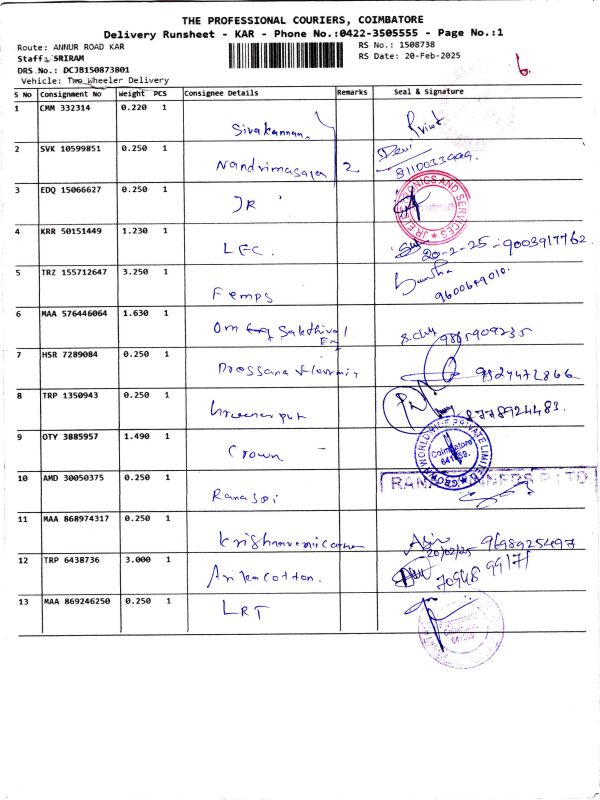 THE PROFESSIONAL COURIERS, COIMBATORE
Delivery Runsheet - KAR - Phone No.:0422-3505555 - Page No.:1
Route: ANNUR ROAD KAR
RS No.: 1508738
Staff: SRIRAM
RS Date: 20-Feb-2025
DRS No.: DCJB150873801
Vehicle: Two Wheeler Delivery
6.
S No Consignment No Weight PCS Consignee Details Remarks Seal & Signature
1 CMM 332314 0.220 1
Sivakannan
2 SVK 10599851 0.250 1
Nandrimasala 2 Devi
3 EDQ 15066627 0.250 1
JR
JR ELECTRONICS AND SERVICES
4 KRR 50151449 1.230 1
LEC. 20-2-25-9003917762.
5 TRZ 155712647 3.250 1
Femps 9600649010.
6 MAA 576446064 1.630 1
Om Sakthival
7 HSR 7289084 0.250 1
8 TRP 1350943 0.250 1
8778924483.
9 OTY 3885957 1.490 1
Crown
Coimbatore
10 AMD 30050375 0.250 1
11 MAA 868974317 0.250 1
20/02/25 9698925497
12 TRP 6438736 3.000 1
Ankacotton. 70948 99171
13 MAA 869246250 0.250 1
LRT